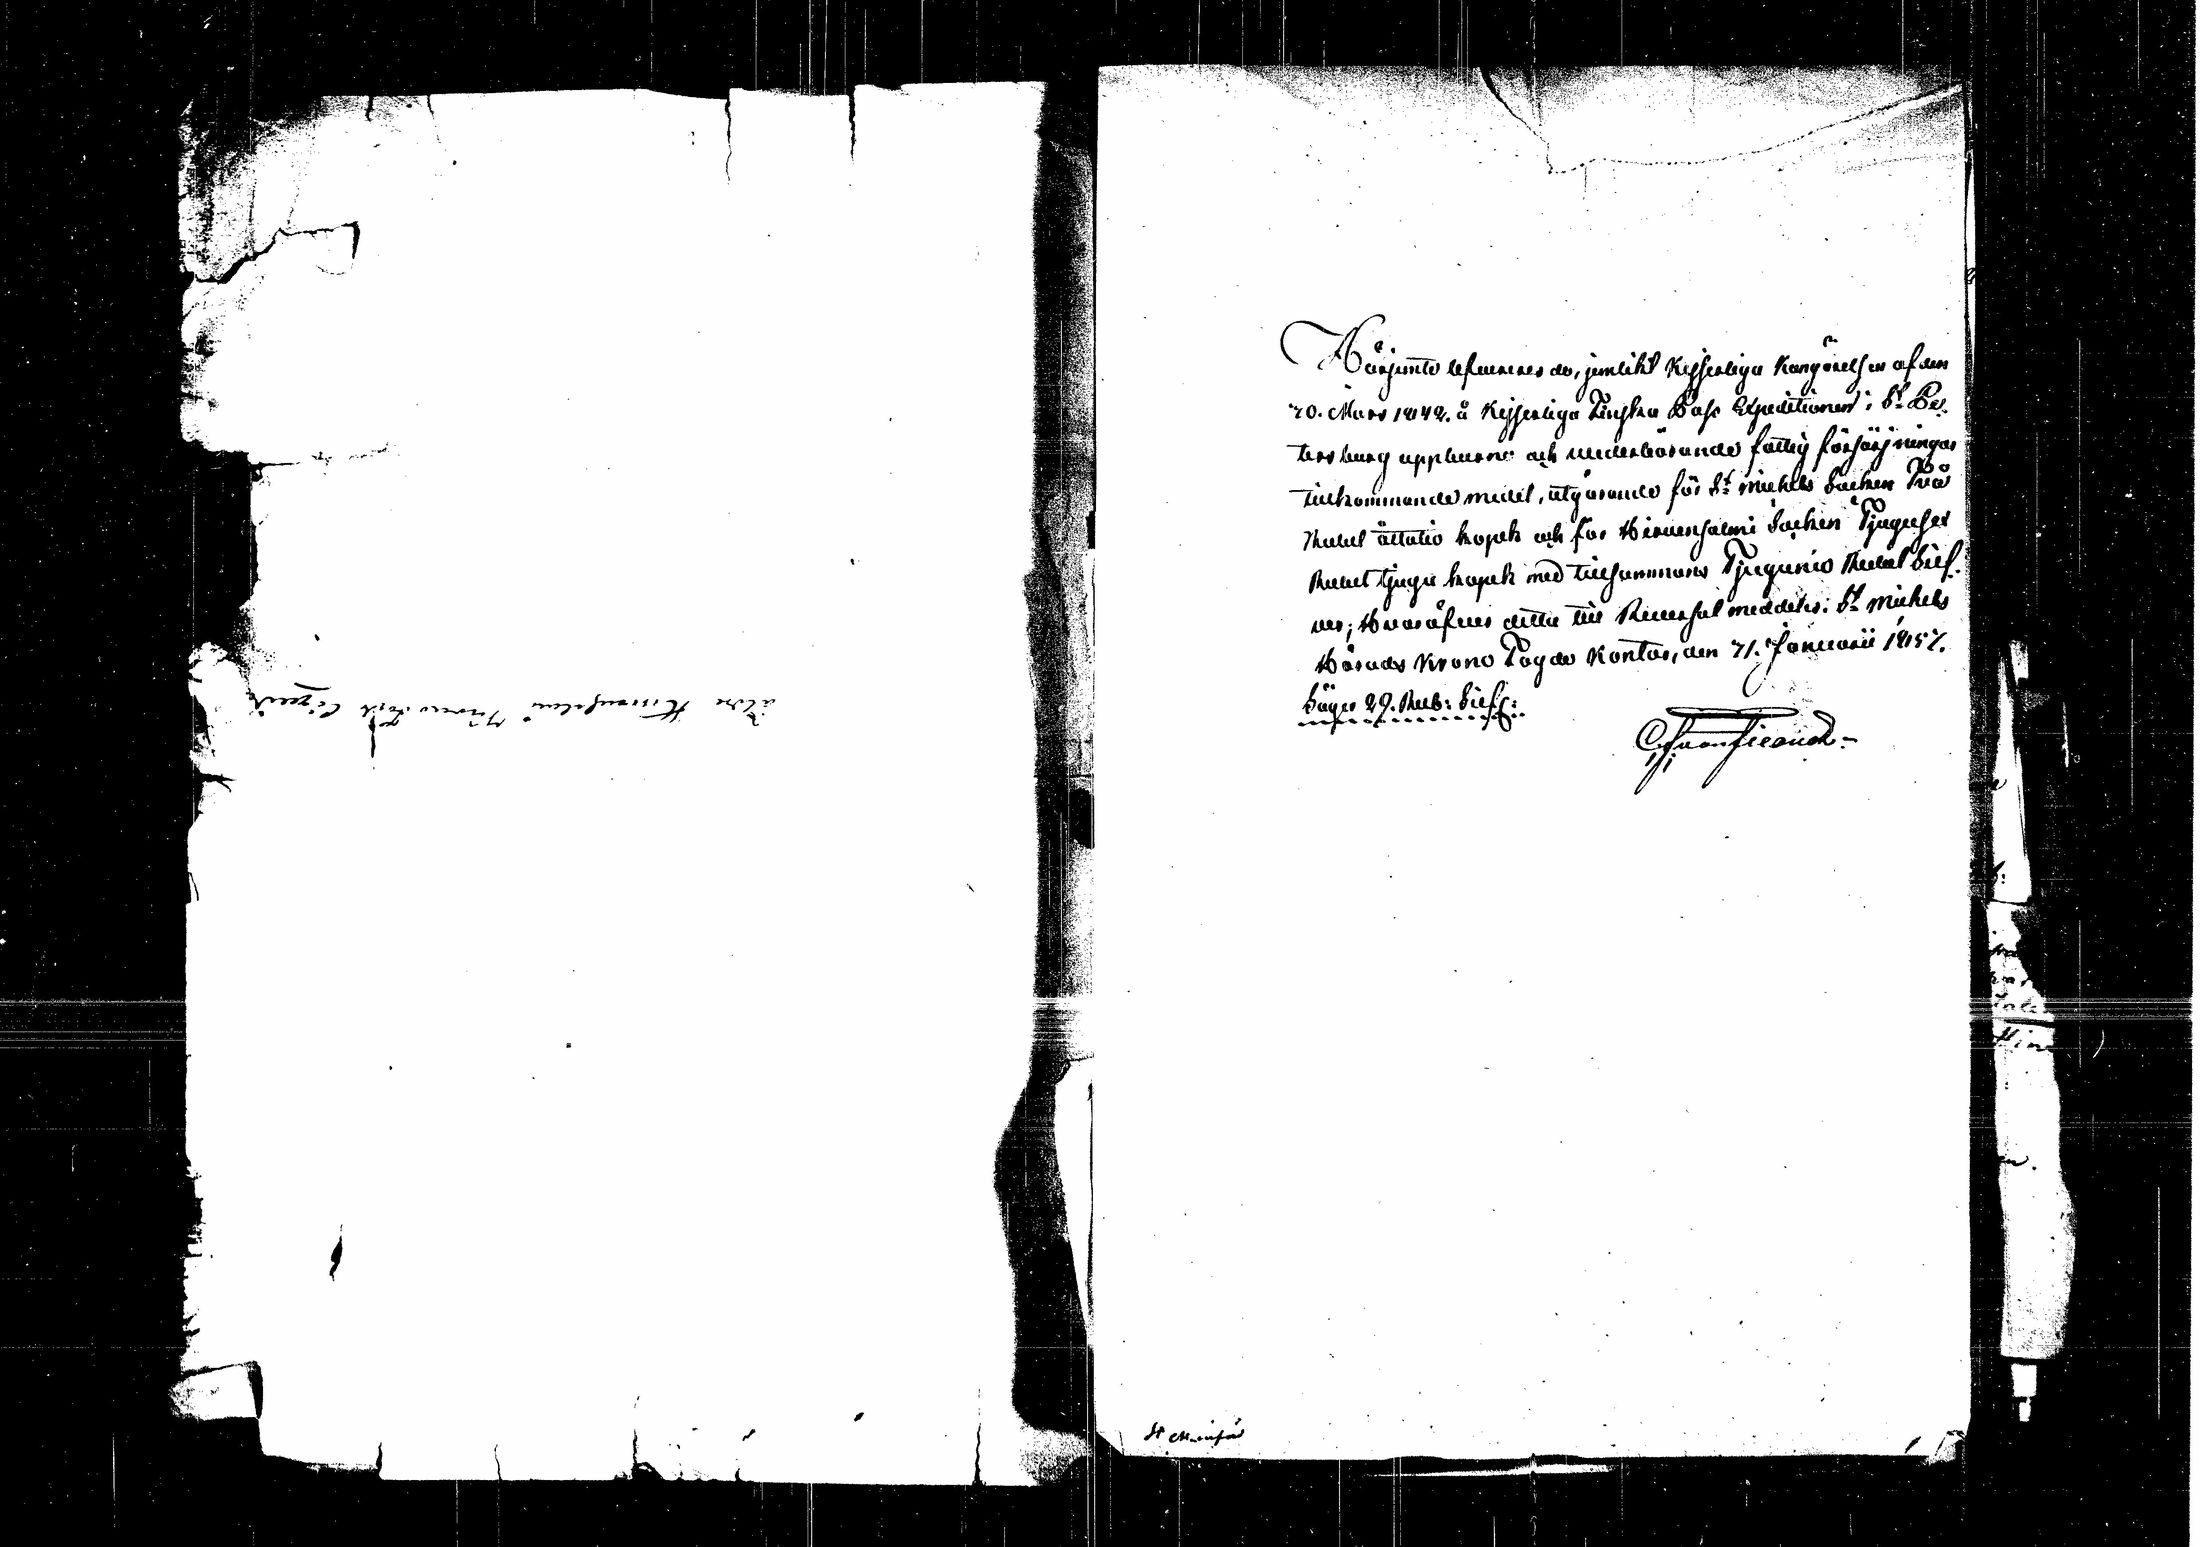 äldre Hirvensalmi
Härjemte lefvereres de, jemlikt Kejserliga Kungörelsen af den
20. Mars 1842. å Kejserliga Finska Pass Expeditionen i St Pe-
tersburg uppburne och vederbörande fattig försörjningar
tillkommande medel, utgörande för St Michels Socken Två
Rubel åttatio kopek och för Hirvensalmi Socken Tjugusex
Rubel tjugu kopek med tillsammans Tjugunio Rubel Silf-
ver; Hvaröfver detta till Reversal meddelas. St Michels
Härads Krono Fogde Kontor, den 21. Januarii 1857.
Säger 29. Rub: Silfr: